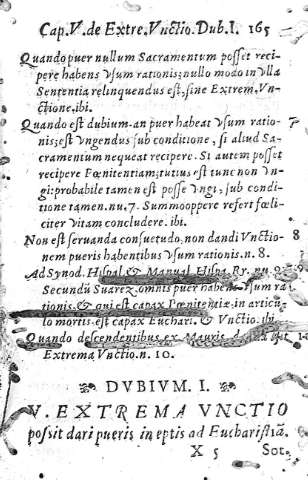 Cap. V. de Extre. Vnctio. Dub. I. 165
Quando puer nullum Sacramentum posset reci-
pere habens vsum rationis; nullo modo in vlla
Sententia relinquendus est, sine Extrem. Vn-
ctione. ibi.
Quando est dubium an puer habeat vsum ratio- 7
nis; est vngendus sub conditione, si aliud Sa-
cramentum nequeat recipere. Si autem posset
recipere Pœnitentiam; tutius est tunc non vn-
gi: probabile tamen est posse vngi, sub condi-
tione tamen. nu. 7. Summoopere refert fœli-
citer vitam concludere. ibi.
Non est seruanda consuetudo, non dandi Vnctio- 8
nem pueris habentibus vsum rationis. n. 8.
Ad Synod. Hispal. & Manual. Hispa. Ry. nu. 9.
Secundū Suarez, omnis puer habens vsum ra-
tionis, & qui est capax Pœnitentiæ; in articu-
lo mortis, est capax Euchari. & Vnctio. ibi.
Quando descendentibus ex Mauris,
Extrema Vnctio. n. 10.
DVBIVM. I.
V. EXTREMA VNCTIO
possit dari pueris ineptis ad Eucharistiā.
X 5 Sot.